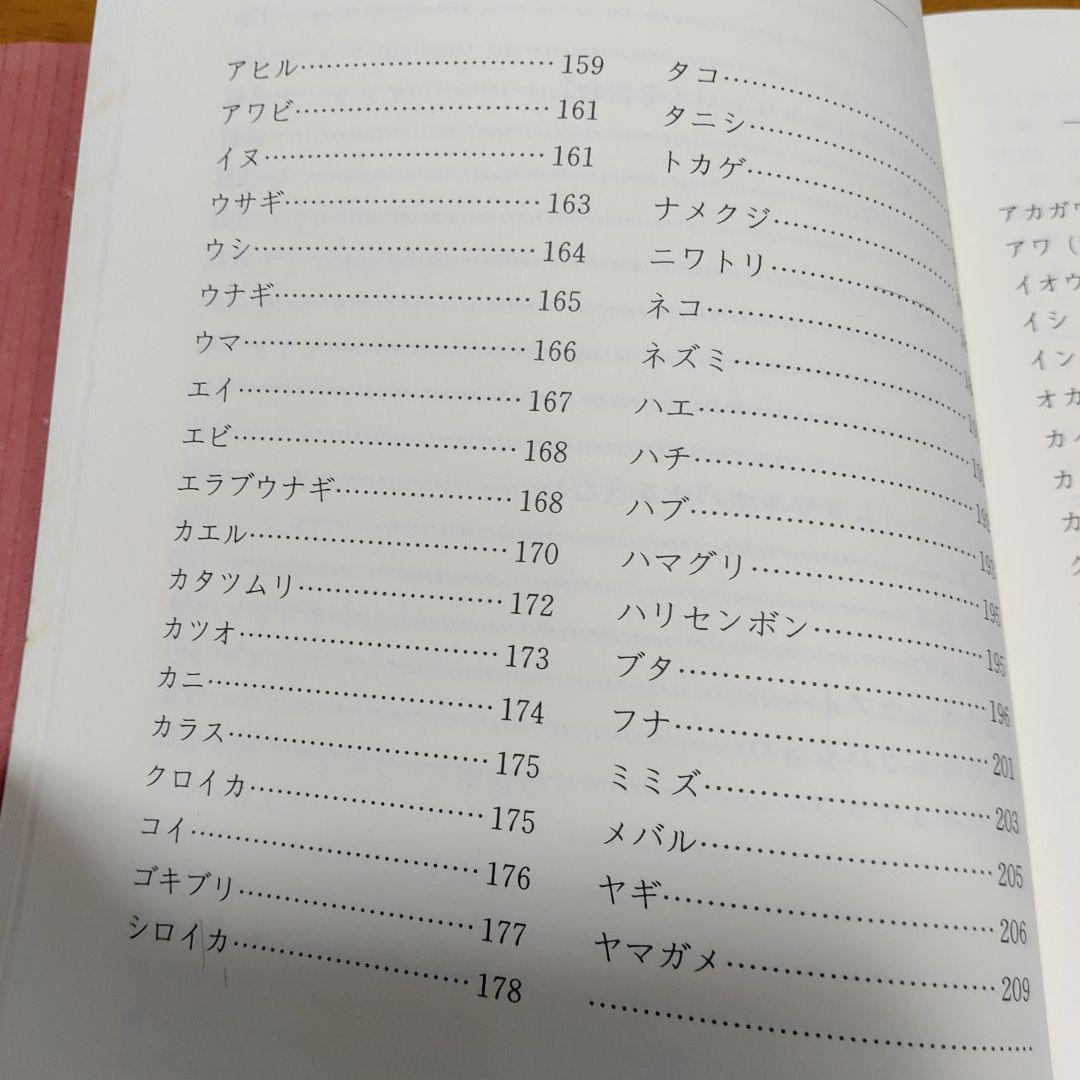 アヒル……………………… 159
アワビ……………………… 161
イヌ……………………… 161
ウサギ……………………… 163
ウシ……………………… 164
ウナギ……………………… 165
ウマ……………………… 166
エイ……………………… 167
エビ……………………… 168
エラブウナギ……………………… 168
カエル……………………… 170
カタツムリ……………………… 172
カツオ……………………… 173
カニ……………………… 174
カラス……………………… 175
クロイカ……………………… 175
コイ……………………… 176
ゴキブリ……………………… 177
シロイカ……………………… 178
タコ………………………
タニシ………………………
トカゲ………………………
ナメクジ………………………
ニワトリ………………………
ネコ………………………
ネズミ………………………
ハエ………………………
ハチ………………………
ハブ………………………
ハマグリ……………………… 195
ハリセンボン……………………… 195
ブタ……………………… 196
フナ……………………… 201
ミミズ……………………… 203
メバル……………………… 205
ヤギ……………………… 206
ヤマガメ……………………… 209
アカガ
アワ（
イオウ
イシ
イン
オカ
カ
カ